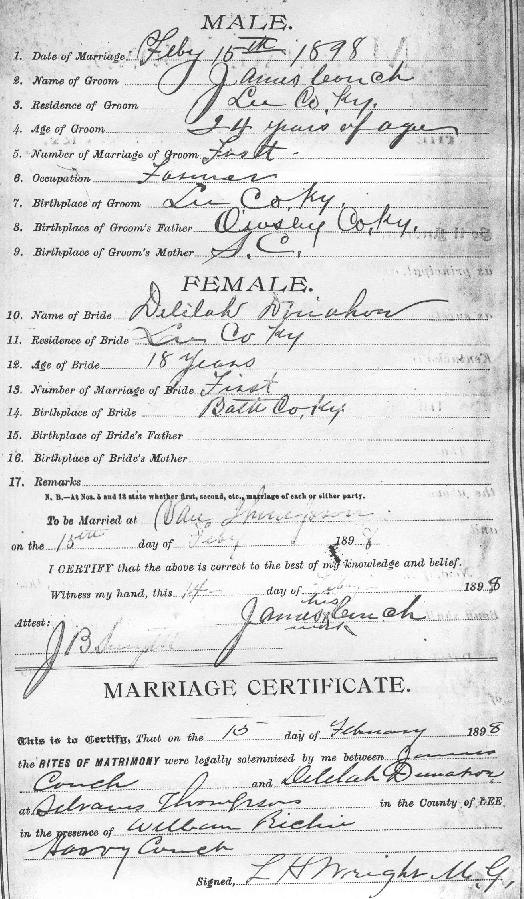 MALE.
1. Date of Marriage Feby 15th 1898
2. Name of Groom James Couch
3. Residence of Groom Lee Co. Ky.
4. Age of Groom 24 years of age
5. Number of Marriage of Groom First
6. Occupation Farmer
7. Birthplace of Groom Lee Co. Ky.
8. Birthplace of Groom's Father Owsley Co. Ky.
9. Birthplace of Groom's Mother S. C.
FEMALE.
10. Name of Bride Delilah Dunahow
11. Residence of Bride Lee Co Ky
12. Age of Bride 18 Years
13. Number of Marriage of Bride First
14. Birthplace of Bride Bath Co. Ky.
15. Birthplace of Bride's Father
16. Birthplace of Bride's Mother
17. Remarks
N. B.—At Nos. 5 and 13 state whether first, second, etc., marriage of each or either party.
To be Married at Thompson
on the 15th day of Feby 1898
I CERTIFY that the above is correct to the best of my knowledge and belief.
Witness my hand, this 14 day of 1898
his
James Couch
mark
Attest:
J B
MARRIAGE CERTIFICATE.
This is to Certify, That on the 15 day of February 1898
the RITES OF MATRIMONY were legally solemnized by me between James
Couch and Delilah Dunahow
at Thompsons in the County of LEE
in the presence of William Richie
Harvy Couch
Signed, L H Wright M. G.